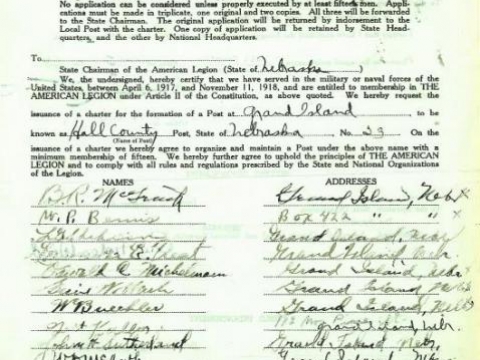 No application can be considered unless properly executed by at least fifteen men. Appli-
cations must be made in triplicate, one original and two copies. All three will be forwarded
to the State Chairman. The original application will be returned by indorsement to the
Local Post with the charter. One copy of application will be retained by State Head-
quarters, and the other by National Headquarters.
To
State Chairman of the American Legion (State of Nebraska)
We, the undersigned, hereby certify that we have served in the military or naval forces of the
United States, between April 6, 1917, and November 11, 1918, and are entitled to membership in THE
AMERICAN LEGION under Article II of the Constitution, as above quoted. We hereby request the
issuance of a charter for the formation of a Post at Grand Island to be
known as Hall County Post, State of Nebraska No. 23 On the
(Name of Post)
issuance of a charter we hereby agree to organize and maintain a Post under the above name with a
minimum membership of fifteen. We hereby further agree to uphold the principles of THE AMERICAN
LEGION and to comply with all rules and regulations prescribed by the State and National Organizations
of the Legion.
NAMES ADDRESSES
Grand Island, Nebr
W. P. Box 422 " "
Grand Island, Nebr
Grand Island Nebr.
Grand Island, Nebr
Grand Island, Nebr
W Buechler Grand Island, Nebr
Grand Island, Nebr.
John H Sutherland Grand Island Nebr.
Grand Island